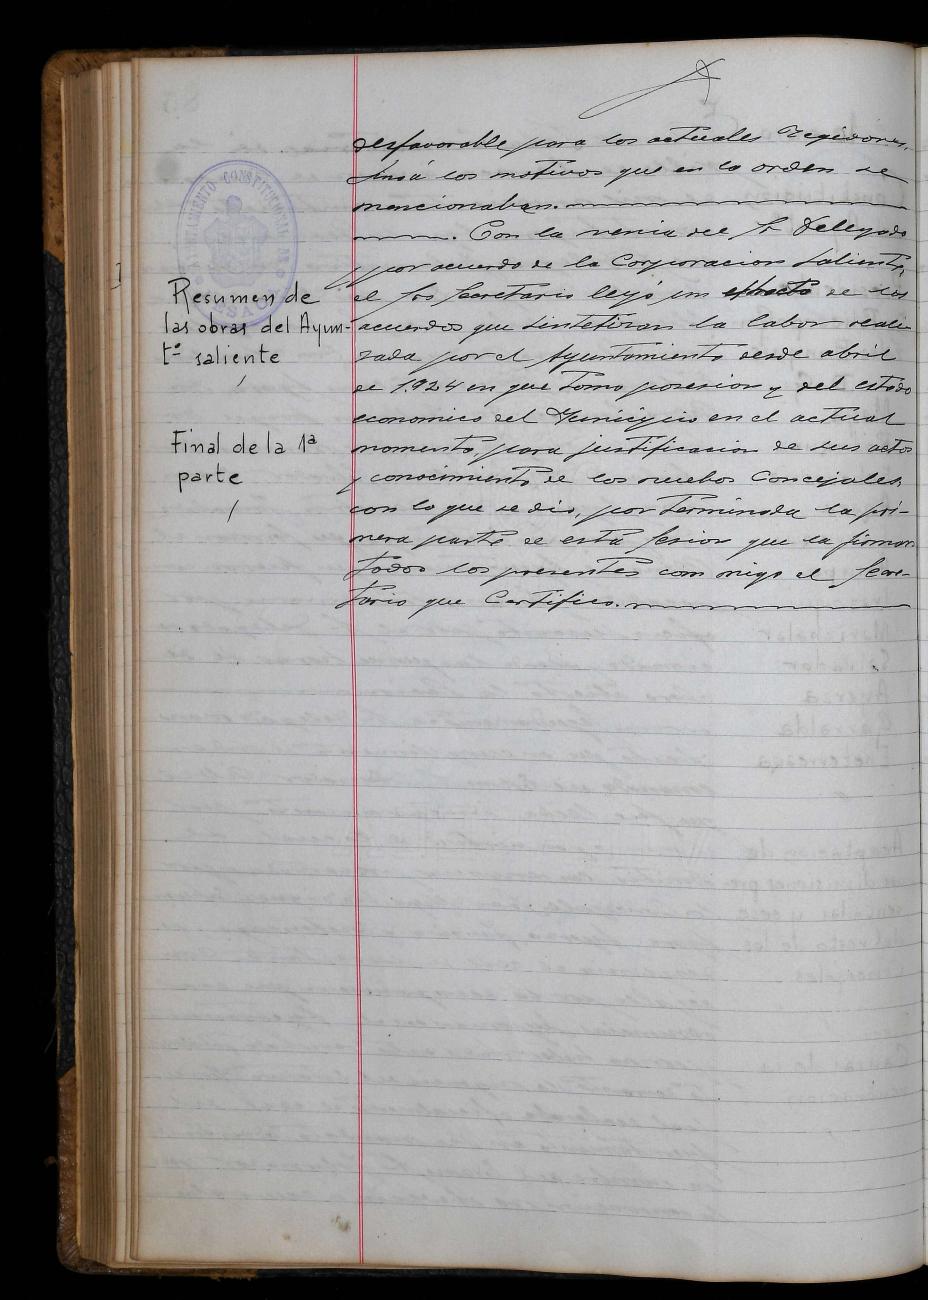 desfavorable para los actuales Regidores,
los motivos que en la orden se
mencionaban.
Con la venia del Sr Delegado
y por acuerdo de la Corporacion saliente,
el Sr Secretario leyó un extracto de los
acuerdos que sintetizan la labor reali-
zada por el Ayuntamiento desde abril
de 1.924 en que tomo posesion y del estado
economico del Municipio en el actual
momento, para justificacion de sus actos
y conocimiento de los nuebos Concejales,
con lo que se dio, por terminada la pri-
mera parte de esta sesion que la firman
todos los presentes con migo el Secre-
tario que Certifico.
Resumen de
las obras del Ayun-
tº saliente
Final de la 1ª
parte
AYUNTAMIENTO CONSTITUCIONAL